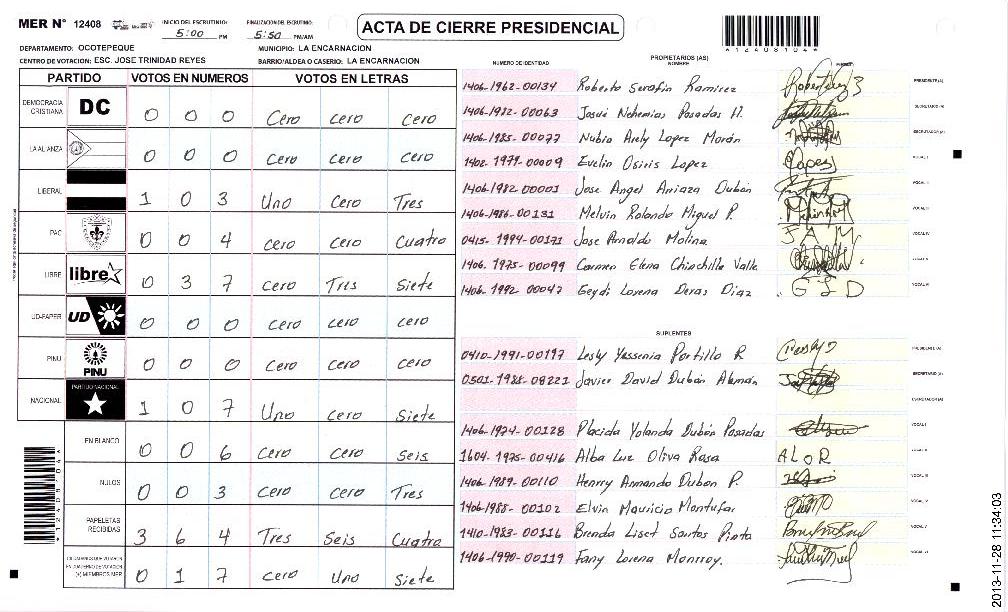 MER N° 12408
INICIO DEL ESCRUTINIO: 5:00 PM
FINALIZACIÓN DEL ESCRUTINIO: 5:50 PM/AM
ACTA DE CIERRE PRESIDENCIAL
*12408104*
DEPARTAMENTO: OCOTEPEQUE
MUNICIPIO: LA ENCARNACION
CENTRO DE VOTACION: ESC. JOSE TRINIDAD REYES
BARRIO/ALDEA O CASERIO: LA ENCARNACION
PARTIDO VOTOS EN NUMEROS VOTOS EN LETRAS
DEMOCRACIA CRISTIANA DC 0 0 0 Cero cero cero
LA ALIANZA 0 0 0 Cero cero cero
LIBERAL 1 0 3 Uno Cero Tres
PAC 0 0 4 cero cero Cuatro
LIBRE libre 0 3 7 cero Tres Siete
UD-FAPER UD 0 0 0 cero cero cero
PINU PINU 0 0 0 cero cero cero
NACIONAL PARTIDO NACIONAL 1 0 7 Uno cero Siete
EN BLANCO 0 0 6 cero cero Seis
NULOS 0 0 3 cero cero Tres
PAPELETAS RECIBIDAS 3 6 4 Tres Seis Cuatro
CIUDADANOS QUE VOTARON EN CUADERNO DE VOTACION (+) MIEMBROS MER 0 1 7 cero Uno Siete
*12408104*
PROPIETARIOS (AS)
NUMERO DE IDENTIDAD NOMBRE
1406-1962-00134 Roberto Serafin Ramirez PRESIDENTE(A)
1406-1982-00063 Josué Nehemias Posadas H. SECRETARIO(A)
1406-1985-00077 Nubia Arely Lopez Morán ESCRUTADOR(A)
1402-1979-00009 Evelin Osiris Lopez Lopez VOCAL I
1406-1982-00001 Jose Angel Arriaza Dubón VOCAL II
1406-1986-00131 Melvin Rolando Miguel P. VOCAL III
0415-1994-00171 Jose Arnaldo Molina J A M VOCAL IV
1406-1975-00099 Carmen Elena Chinchilla Valle VOCAL V
1406-1992-00047 Geydi Lorena Deras Diaz G L D VOCAL VI
SUPLENTES
0410-1991-00197 Lesly Yessenia Portillo R PRESIDENTE(A)
0501-1988-08221 Javier David Dubón Alemán SECRETARIO(A)
ESCRUTADOR(A)
1406-1974-00128 Placida Yolanda Dubón Posadas VOCAL I
1604-1975-00416 Alba Luz Oliva Rosa A L O R VOCAL II
1406-1989-00110 Henrry Armando Dubon P. VOCAL III
1406-1988-00102 Elvin Mauricio Montufar VOCAL IV
1410-1983-00116 Brenda Liset Santos Pinto VOCAL V
1406-1990-00119 Fany Lorena Monrroy. VOCAL VI
2013-11-28 11:34:03